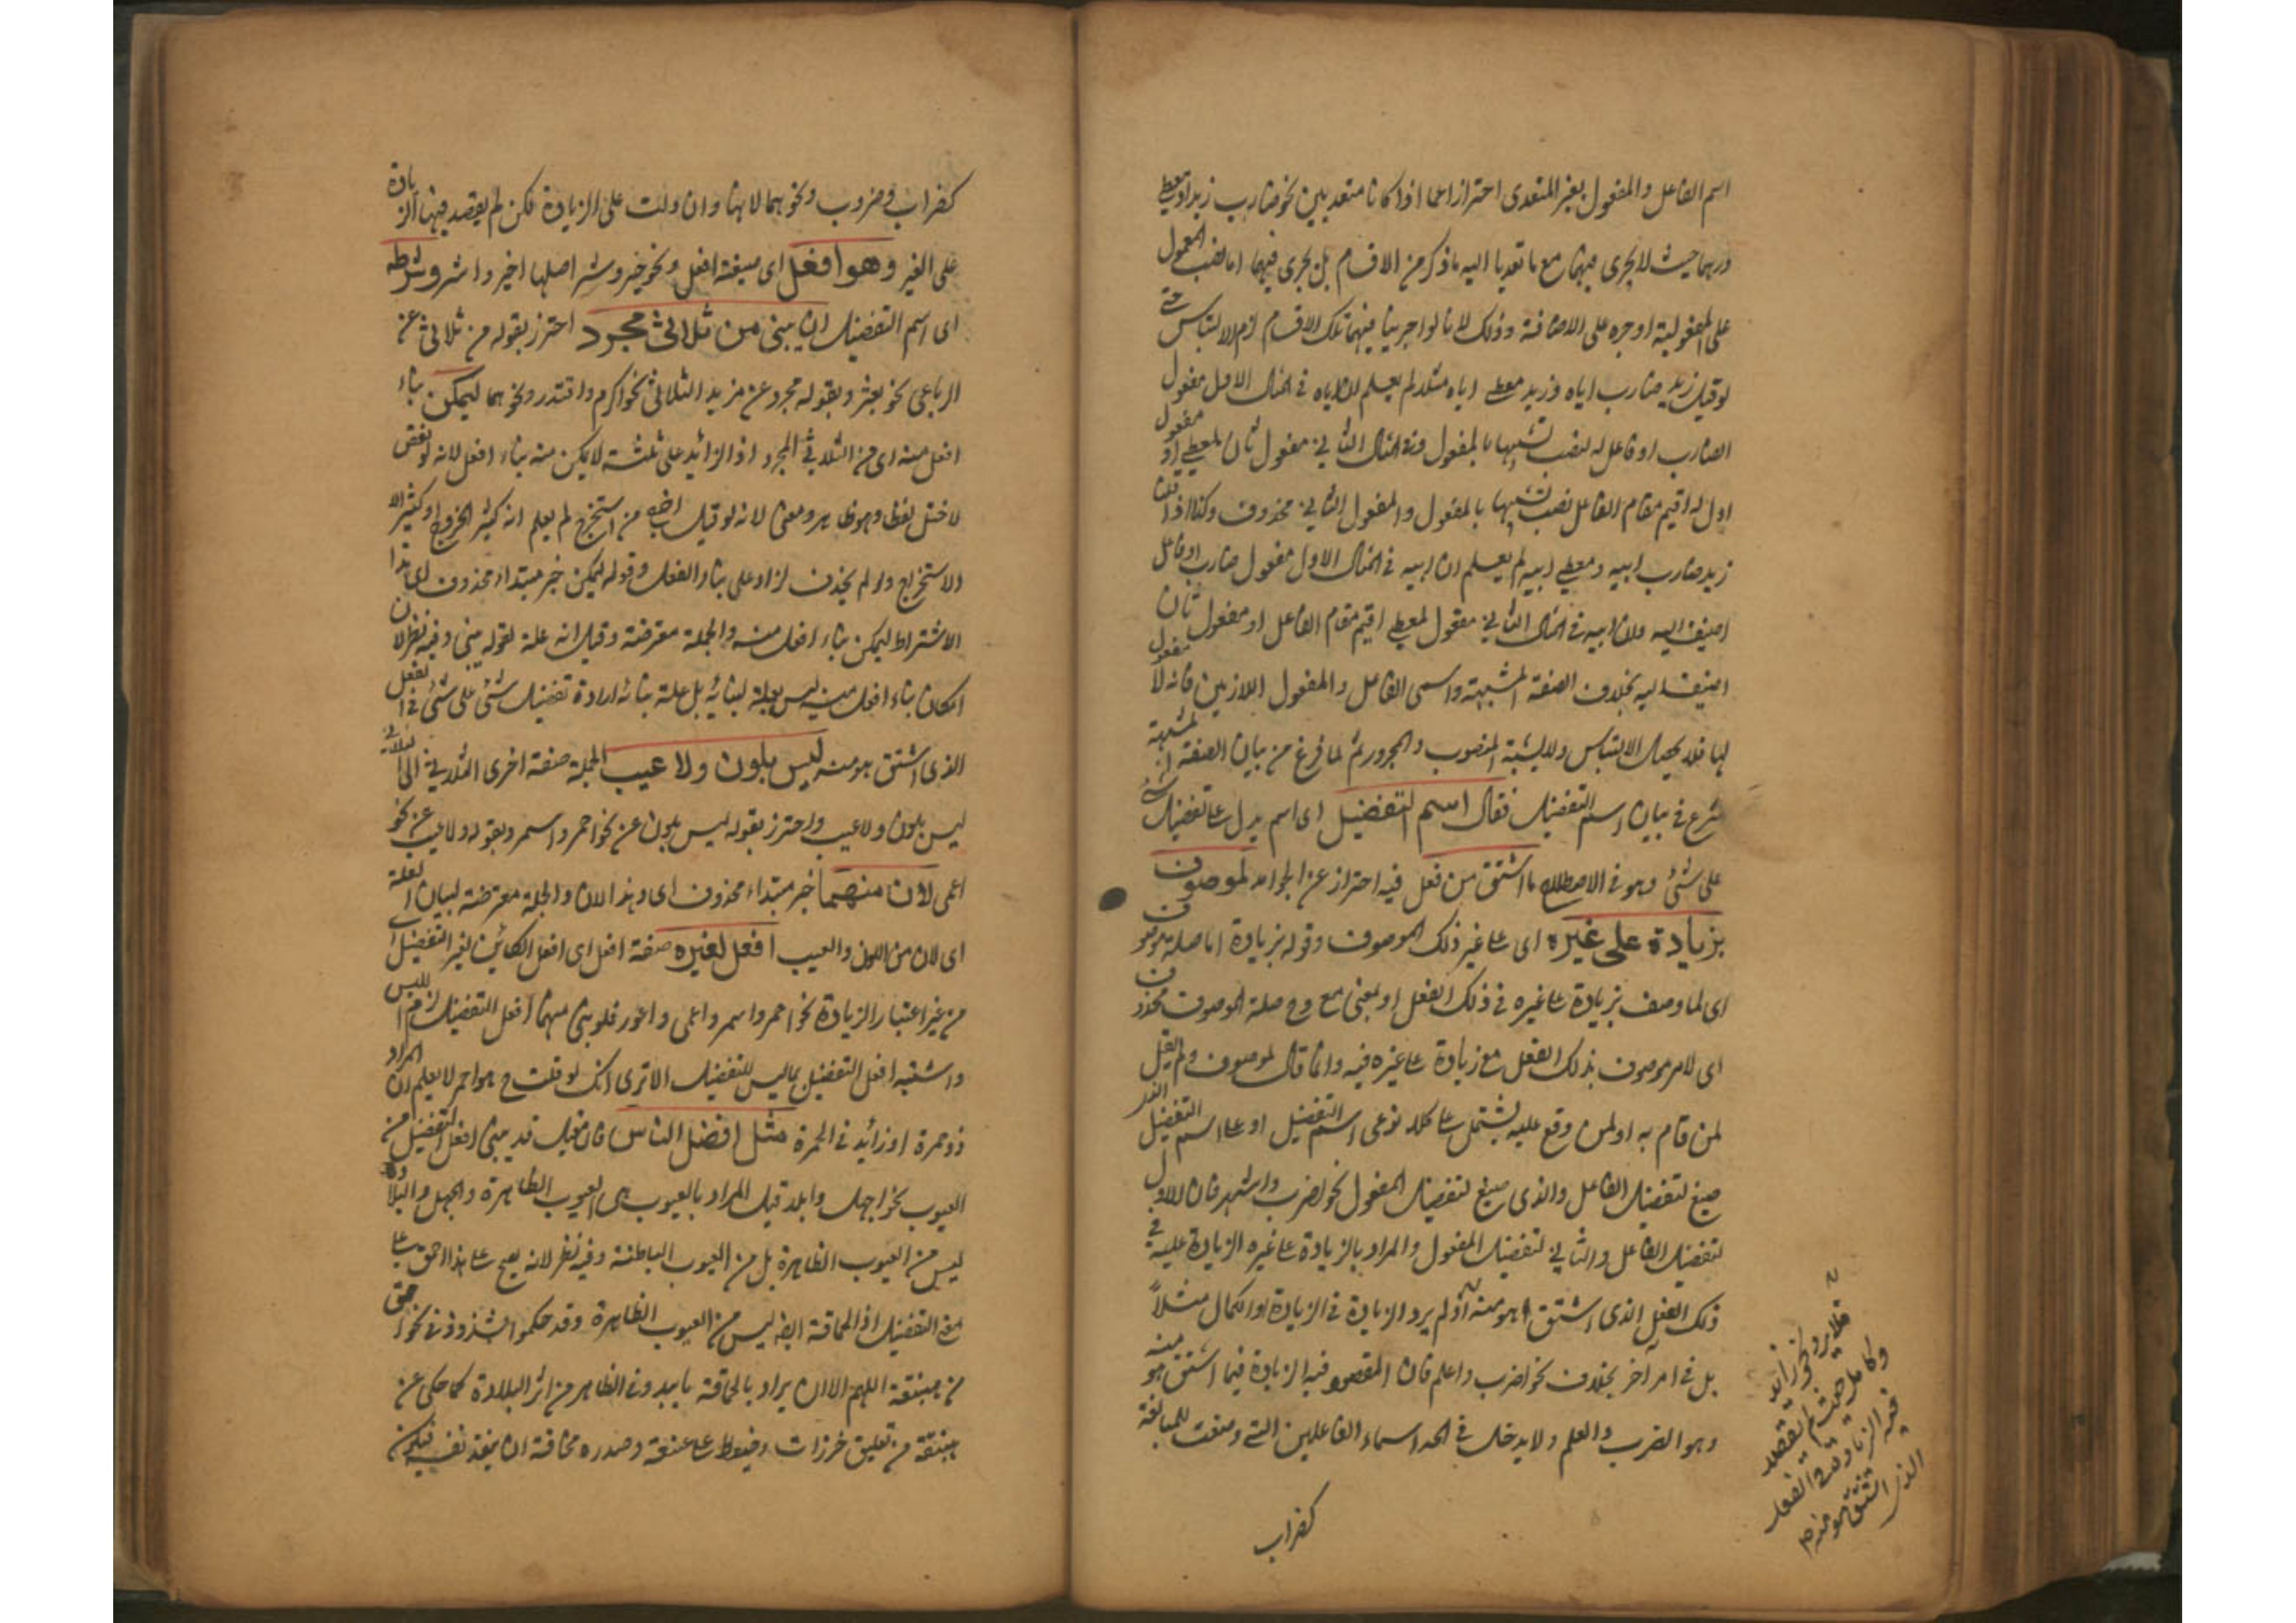 اسم الفاعل والمفعول بغير المتعدى احترازا عما اذا كانا متعديين نحو ضارب زيدا ومعطى
درهما حيث لا يجرى فيهما مع ما تعديا اليه ما ذكر من الاقسام بل يجرى فيهما اما نصب المعمول
على المفعولية او جره على الاضافة وذلك لانا لو اجرينا فيهما تلك الاقسام لزم الالتباس حتى
لو قيل زيد ضارب اياه وزيد معطى اياه مثلا لم يعلم ان اياه فى المثال الاول مفعول
الضارب او فاعل له نصب تشبيها بالمفعول وفى المثال الثانى مفعول ثان لمعطى او مفعول
اول له اقيم مقام الفاعل نصب تشبيها بالمفعول والمفعول الثانى محذوف وكذا اذا قلت
زيد ضارب ابيه ومعطى ابيه لم يعلم ان ابيه فى المثال الاول مفعول ضارب او فاعل
اضيف اليه وان ابيه فى المثال الثانى مفعول لمعطى اقيم مقام الفاعل او مفعول ثان
اضيف اليه بخلاف الصفة المشبهة واسمى الفاعل والمفعول اللازمين فانه لا مفعول
لها فلا يحصل الالتباس ولا يشتبه المنصوب والمجرور ثم لما فرغ من بيان الصفة المشبهة
شرع فى بيان اسم التفضيل فقال اسم التفضيل اى اسم يدل على تفضيل شئ
على شئ وهو فى الاصطلاح ما اشتق من فعل فيه احتراز عن الجوامد لموصوف
بزيادة على غيره اى على غير ذلك الموصوف وقوله بزيادة اما صلة موصوف
اى لما وصف بزيادة على غيره فى ذلك الفعل او بمعنى مع وح صلة الموصوف محذوف
اى لامر موصوف بذلك الفعل مع زيادة على غيره فيه وانما قال لموصوف ولم يقل
لمن قام به او لمن وقع عليه ليشتمل على كلا نوعى اسم التفضيل او على اسم التفضيل الذى
صيغ لتفضيل الفاعل والذى صيغ لتفضيل المفعول نحو اضرب واشهر فان الاول
لتفضيل الفاعل والثانى لتفضيل المفعول والمراد بالزيادة على غيره الزيادة عليه فى
ذلك الفعل الذى اشتق هو منه اذ لم يرد الزيادة فى الزيادة او الكمال مثلاً
بل فى امر آخر بخلاف نحو اضرب واعلم فان المقصود فيه الزيادة فيما اشتق هو منه
وهو الضرب والعلم ولا يدخل فى الحد اسماء الفاعلين التى وضعت للمبالغة
كضراب
فلا يرد نحو زائد
وكامل حيث لم يقصد
فيه الزيادة فى الفعل
الذى اشتق هو منه
كضراب وضروب ونحوهما لانها وان دلت على الزيادة لكن لم يقصد فيها الزيادة
على الغير وهو افعل اى صيغة افعل ونحو خير وشر اصلها اخير واشر وشرطه
اى اسم التفضيل ان يبنى من ثلاثى مجرد احترز بقوله من ثلاثى عن
الرباعى نحو بعثر وبقوله مجرد عن مزيد الثلاثى نحو اكرم واقتدر ونحوهما ليمكن بناء
افعل منه اى من الثلاثى المجرد اذ الزائد على ثلثة لا يمكن منه بناء افعل لانه لو نقص
لاختل لفظا وهو ظاهر ومعنى لانه لو قيل اخرج من استخرج لم يعلم انه كثير الخروج او كثير
الاستخراج ولو لم يحذف لزاد على بناء الفعل وقوله ليمكن خبر مبتداء محذوف اى هذا
الاشتراط ليمكن بناء افعل منه والجملة معترضة وقيل انه علة لقوله يبنى وفيه نظر لان
امكان بناء افعل منه ليس بعلة لبنائه بل علة بنائه ارادة تفضيل شئ على شئ فى الفعل
الذى اشتق هو منه ليس بلون ولا عيب الجملة صفة اخرى لثلاثى اى
ليس بلون ولا عيب واحترز بقوله ليس بلون عن نحو احمر واسمر وبقوله ولا عيب عن نحو
اعمى لان منهما خبر مبتداء محذوف اى وهذا لان والجملة معترضة لبيان العلة
اى لان من اللون والعيب افعل لغيره صفة افعل اى افعل الكائن لغير التفضيل
من غير اعتبار الزيادة نحو احمر واسمر واعمى واعور فلو بنى منهما افعل التفضيل لزم اللبس
واشتبه افعل التفضيل بما ليس للتفضيل الا ترى انك لو قلت ح هو احمر لا يعلم ان المراد
ذو حمرة او زائد فى الحمرة مثل افضل الناس فان قيل قد يبنى افعل التفضيل من
العيوب نحو اجهل وابلد قيل المراد بالعيوب هى العيوب الظاهرة والجهل والبلادة
ليس من العيوب الظاهرة بل من العيوب الباطنة وفيه نظر لانه يصح على هذا احمق على
معنى التفضيل اذ الحماقة ايضا ليس من العيوب الظاهرة وقد حكموا بشذوذ فى نحو احمق
من هبنقة اللهم الا ان يراد بالحماقة ما يبدو فى الظاهر من اثر البلادة كما حكى عن
هبنقة من تعليق خرزات وخيوط على عنقه وصدره مخافة ان يفقد نفسه فيكون